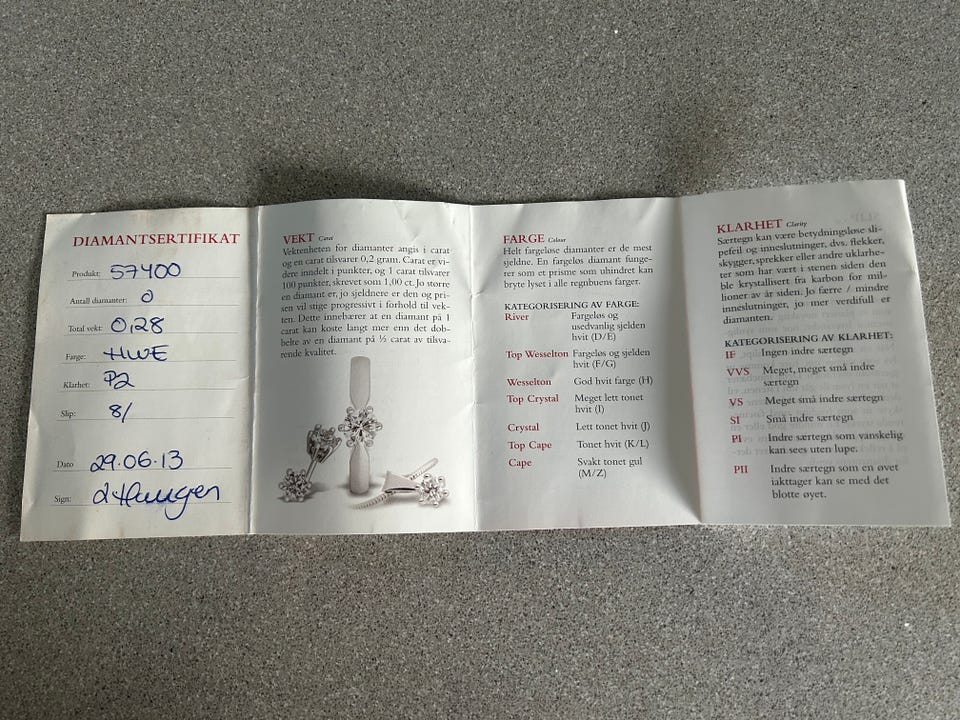 DIAMANTSERTIFIKAT
Produkt: 57400
Antall diamanter: 0
Total vekt: 0,28
Farge: HWE
Klarhet: P2
Slip: 8/
Dato 29.06.13
Sign:
VEKT Carat
Vektenheten for diamanter angis i carat
og en carat tilsvarer 0,2 gram. Carat er vi-
dere inndelt i punkter, og 1 carat tilsvarer
100 punkter, skrevet som 1,00 ct. Jo større
en diamant er, jo sjeldnere er den og pri-
sen vil stige progressivt i forhold til vek-
ten. Dette innebærer at en diamant på 1
carat kan koste langt mer enn det dob-
belte av en diamant på ½ carat av tilsva-
rende kvalitet.
FARGE Colour
Helt fargeløse diamanter er de mest
sjeldne. En fargeløs diamant funge-
rer som et prisme som uhindret kan
bryte lyset i alle regnbuens farger.
KATEGORISERING AV FARGE:
River Fargeløs og
usedvanlig sjelden
hvit (D/E)
Top Wesselton Fargeløs og sjelden
hvit (F/G)
Wesselton God hvit farge (H)
Top Crystal Meget lett tonet
hvit (I)
Crystal Lett tonet hvit (J)
Top Cape Tonet hvit (K/L)
Cape Svakt tonet gul
(M/Z)
KLARHET Clarity
Særtegn kan være betydningsløse sli-
pefeil og inneslutninger, dvs. flekker,
skygger, sprekker eller andre uklarhe-
ter som har vært i stenen siden den
ble krystallisert fra karbon for mil-
lioner av år siden. Jo færre / mindre
inneslutninger, jo mer verdifull er
diamanten.
KATEGORISERING AV KLARHET:
IF Ingen indre særtegn
VVS Meget, meget små indre
særtegn
VS Meget små indre særtegn
SI Små indre særtegn
PI Indre særtegn som vanskelig
kan sees uten lupe.
PII Indre særtegn som en øvet
iakttager kan se med det
blotte øyet.